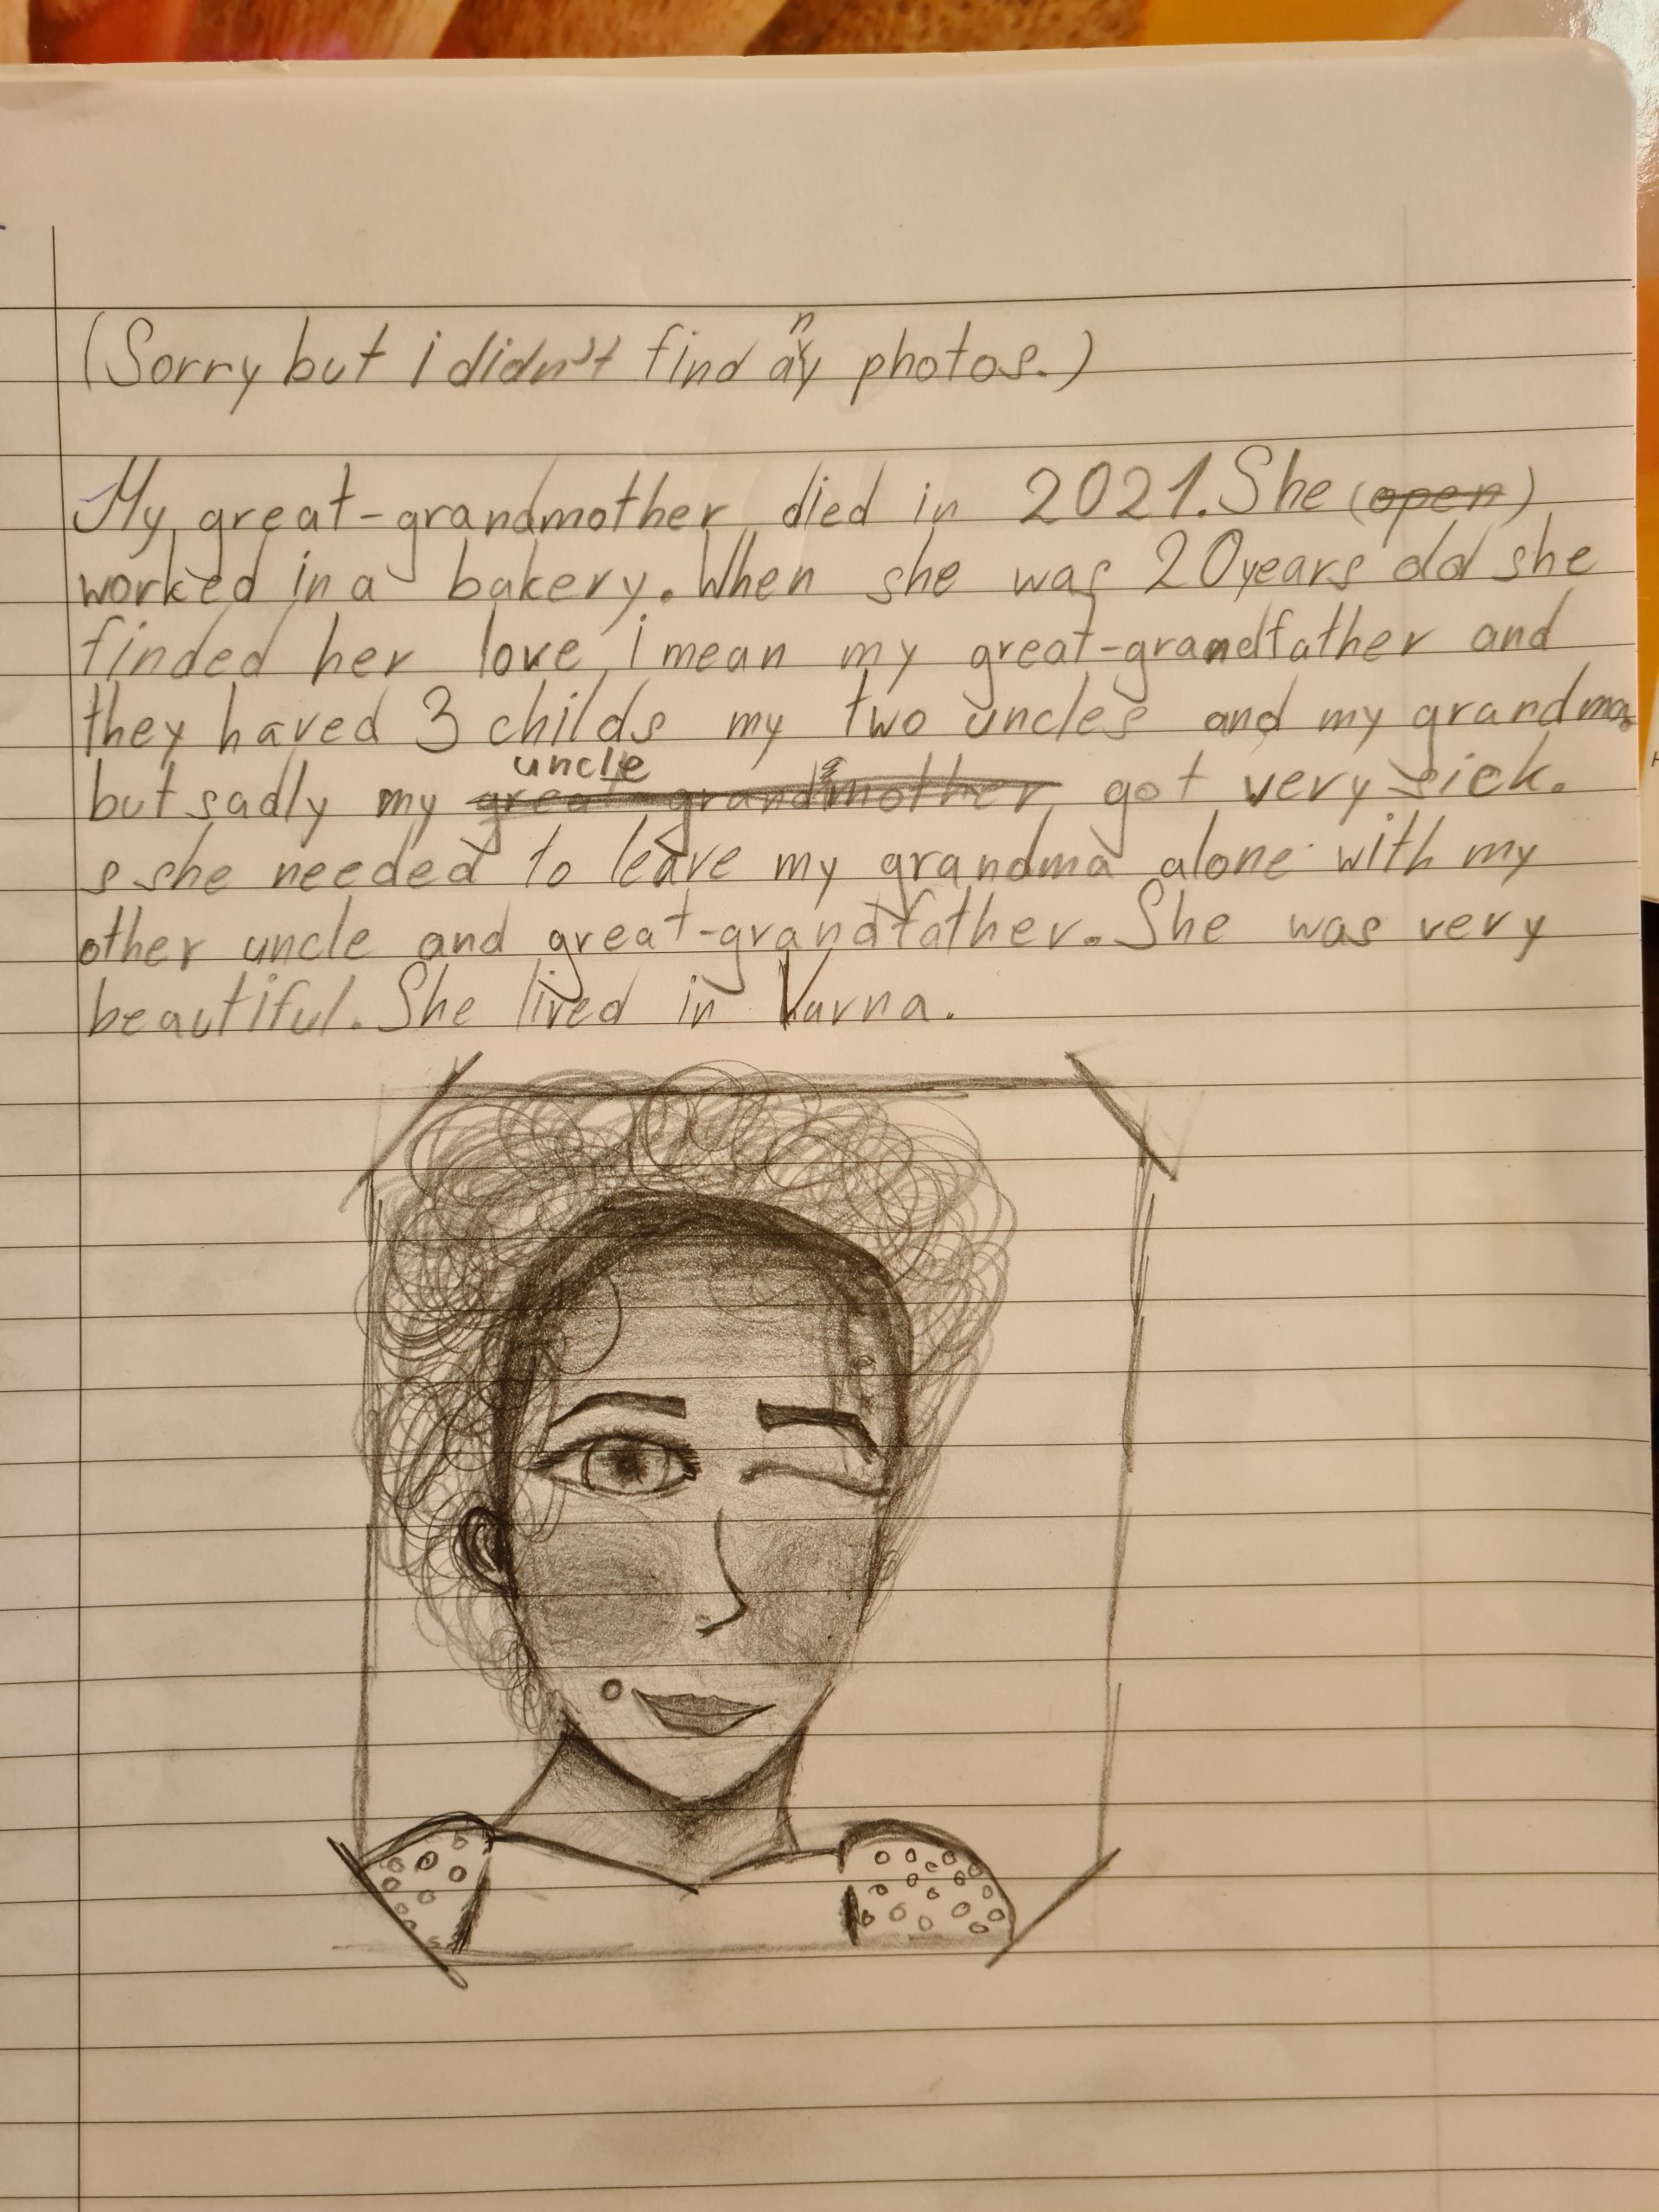 (Sorry but i didn't find any photos.)
My great-grandmother died in 2021. She (open)
worked in a bakery. When she was 20 years old she
finded her love, i mean my great-grandfather and
they haved 3 childs my two uncles and my grandma
but sadly my great-grandmother uncle got very sick.
s she needed to leave my grandma alone with my
other uncle and great-grandfather. She was very
beautiful. She lived in Varna.